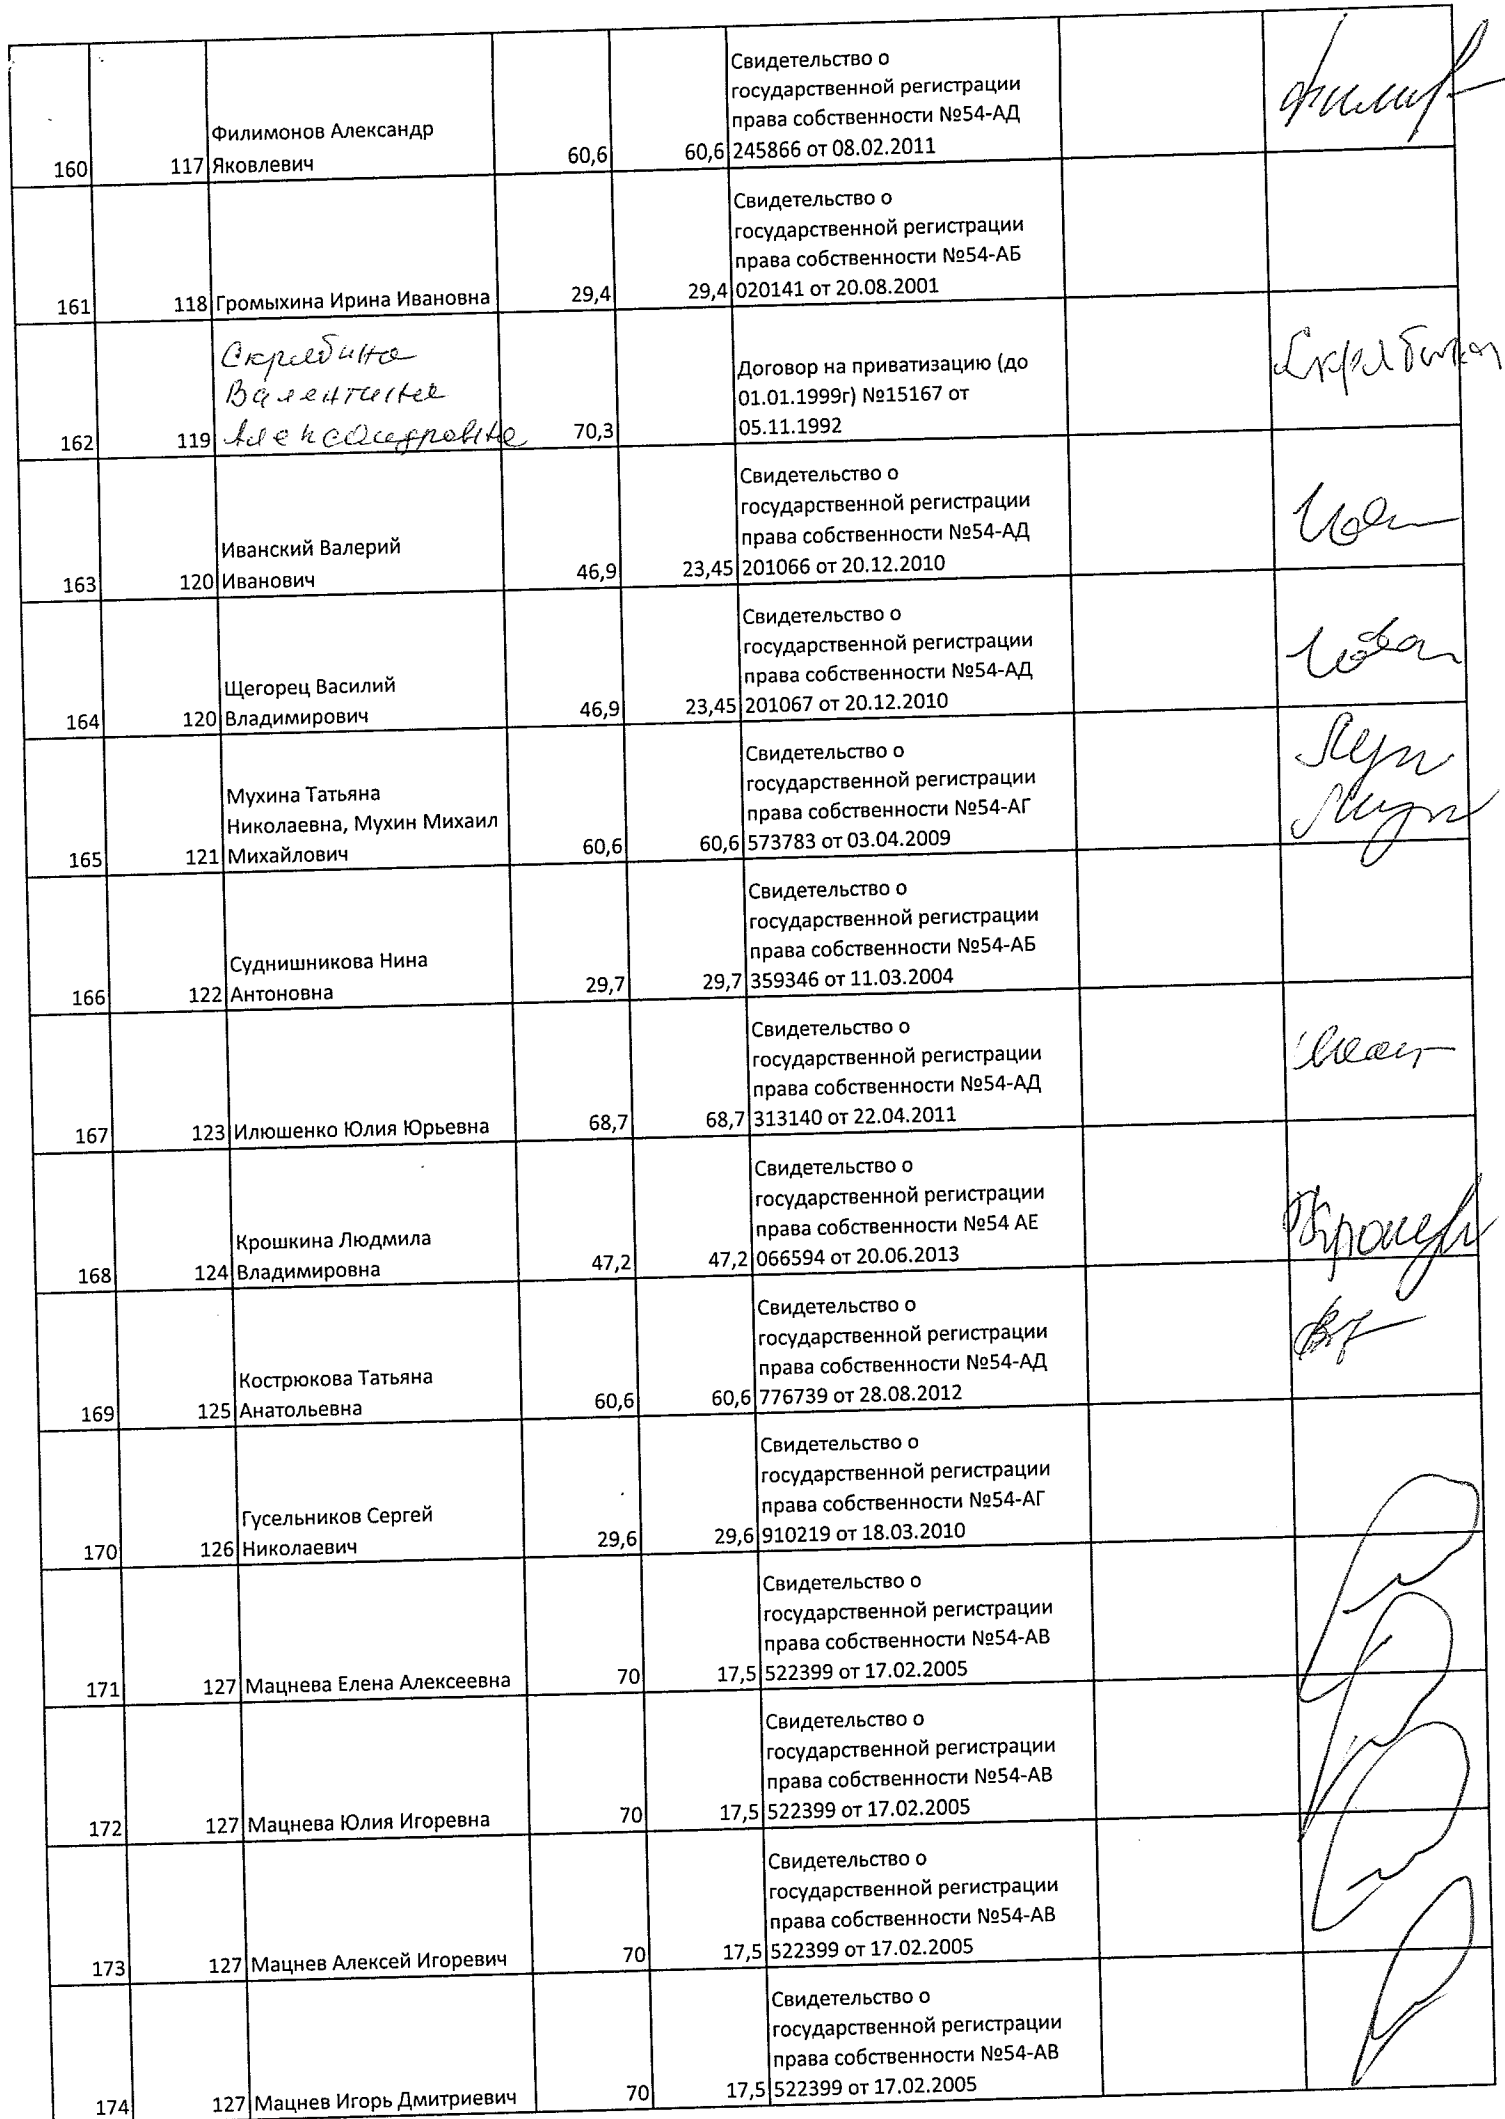 160 117 Филимонов Александр
Яковлевич 60,6 60,6 Свидетельство о
государственной регистрации
права собственности №54-АД
245866 от 08.02.2011
161 118 Громыхина Ирина Ивановна 29,4 29,4 Свидетельство о
государственной регистрации
права собственности №54-АБ
020141 от 20.08.2001
162 119 Скрябина
Валентина
Александровна 70,3 Договор на приватизацию (до
01.01.1999г) №15167 от
05.11.1992 Скрябина
163 120 Иванский Валерий
Иванович 46,9 23,45 Свидетельство о
государственной регистрации
права собственности №54-АД
201066 от 20.12.2010
164 120 Щегорец Василий
Владимирович 46,9 23,45 Свидетельство о
государственной регистрации
права собственности №54-АД
201067 от 20.12.2010
165 121 Мухина Татьяна
Николаевна, Мухин Михаил
Михайлович 60,6 60,6 Свидетельство о
государственной регистрации
права собственности №54-АГ
573783 от 03.04.2009
166 122 Суднишникова Нина
Антоновна 29,7 29,7 Свидетельство о
государственной регистрации
права собственности №54-АБ
359346 от 11.03.2004
167 123 Илюшенко Юлия Юрьевна 68,7 68,7 Свидетельство о
государственной регистрации
права собственности №54-АД
313140 от 22.04.2011
168 124 Крошкина Людмила
Владимировна 47,2 47,2 Свидетельство о
государственной регистрации
права собственности №54 АЕ
066594 от 20.06.2013
169 125 Кострюкова Татьяна
Анатольевна 60,6 60,6 Свидетельство о
государственной регистрации
права собственности №54-АД
776739 от 28.08.2012
170 126 Гусельников Сергей
Николаевич 29,6 29,6 Свидетельство о
государственной регистрации
права собственности №54-АГ
910219 от 18.03.2010
171 127 Мацнева Елена Алексеевна 70 17,5 Свидетельство о
государственной регистрации
права собственности №54-АВ
522399 от 17.02.2005
172 127 Мацнева Юлия Игоревна 70 17,5 Свидетельство о
государственной регистрации
права собственности №54-АВ
522399 от 17.02.2005
173 127 Мацнев Алексей Игоревич 70 17,5 Свидетельство о
государственной регистрации
права собственности №54-АВ
522399 от 17.02.2005
174 127 Мацнев Игорь Дмитриевич 70 17,5 Свидетельство о
государственной регистрации
права собственности №54-АВ
522399 от 17.02.2005